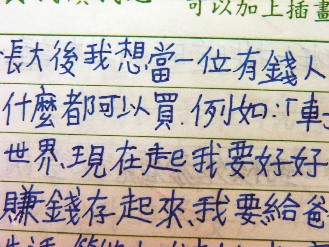 可以加上插畫
長大後我想當一位有錢人
什麼都可以買.例如:「車
世界、現在起我要好好
賺錢存起來、我要給爸